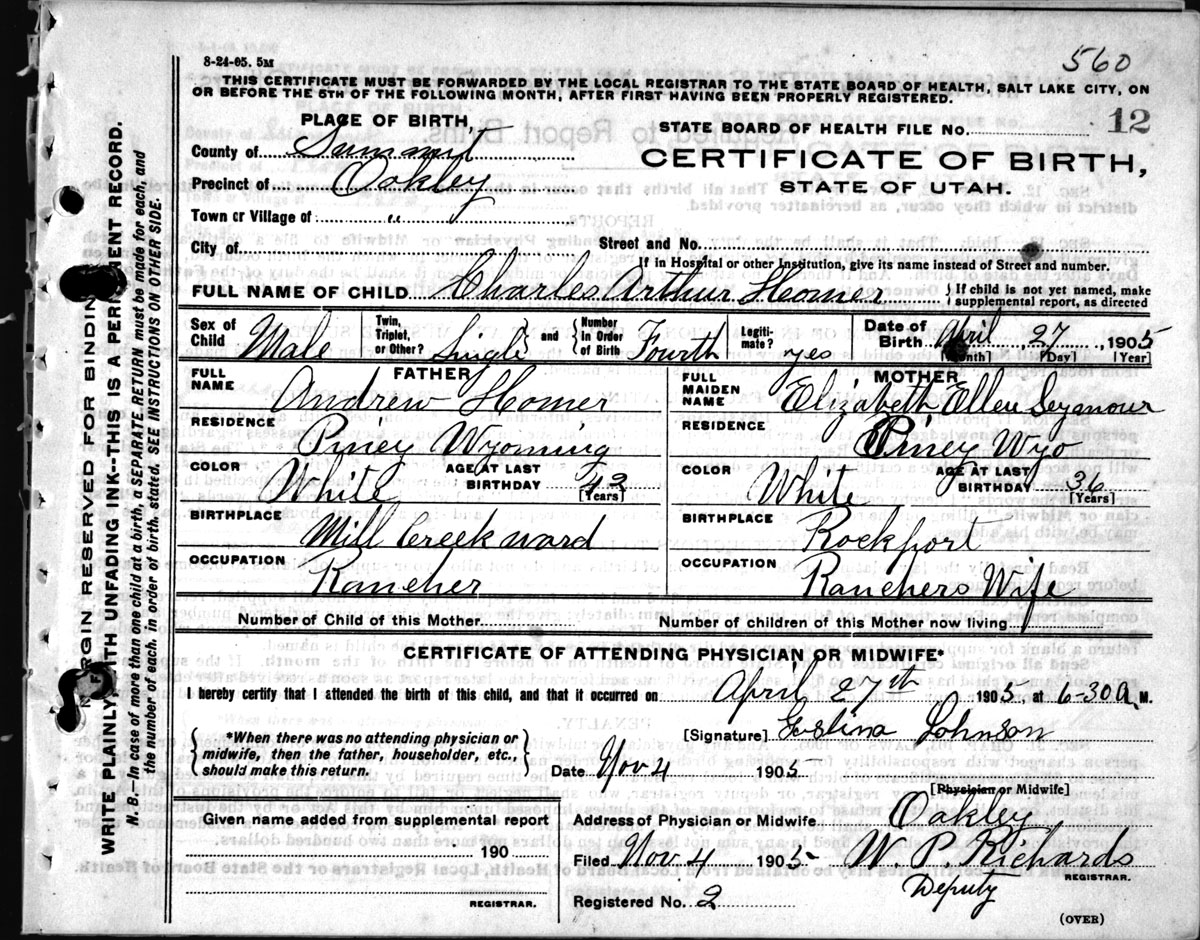 560
8-24-05. 5M
THIS CERTIFICATE MUST BE FORWARDED BY THE LOCAL REGISTRAR TO THE STATE BOARD OF HEALTH, SALT LAKE CITY, ON
OR BEFORE THE 5TH OF THE FOLLOWING MONTH, AFTER FIRST HAVING BEEN PROPERLY REGISTERED.
PLACE OF BIRTH,
STATE BOARD OF HEALTH FILE No. 12
County of Summit
CERTIFICATE OF BIRTH,
Precinct of Oakley
STATE OF UTAH.
Town or Village of "
City of Street and No.
If in Hospital or other Institution, give its name instead of Street and number.
FULL NAME OF CHILD Charles Arthur Homer } If child is not yet named, make supplemental report, as directed
Sex of Child Male Twin, Triplet, or Other? Single } and { Number in Order of Birth Fourth Legitimate? yes Date of Birth April 27, 1905
[Month] [Day] [Year]
FATHER
FULL NAME Andrew Homer
RESIDENCE Piney Wyoming
COLOR White AGE AT LAST BIRTHDAY 42 [Years]
BIRTHPLACE Mill Creek ward
OCCUPATION Rancher
MOTHER
FULL MAIDEN NAME Elizabeth Ellen Seymour
RESIDENCE Piney Wyo
COLOR White AGE AT LAST BIRTHDAY 36 [Years]
BIRTHPLACE Rockport
OCCUPATION Ranchers Wife
Number of Child of this Mother Number of children of this Mother now living
CERTIFICATE OF ATTENDING PHYSICIAN OR MIDWIFE*
I hereby certify that I attended the birth of this child, and that it occurred on April 27th 1905 at 6-30 A M.
[Signature] Johnson
{ *When there was no attending physician or midwife, then the father, householder, etc., should make this return. }
Date Nov 4 1905
[Physician or Midwife]
Given name added from supplemental report
190
REGISTRAR.
Address of Physician or Midwife Oakley
Filed Nov 4 1905 W. P. Richards
REGISTRAR.
Deputy
Registered No. 2
(OVER)
MARGIN RESERVED FOR BINDING
WRITE PLAINLY, WITH UNFADING INK--THIS IS A PERMANENT RECORD.
N. B.—In case of more than one child at a birth, a SEPARATE RETURN must be made for each, and
the number of each, in order of birth, stated. SEE INSTRUCTIONS ON OTHER SIDE.